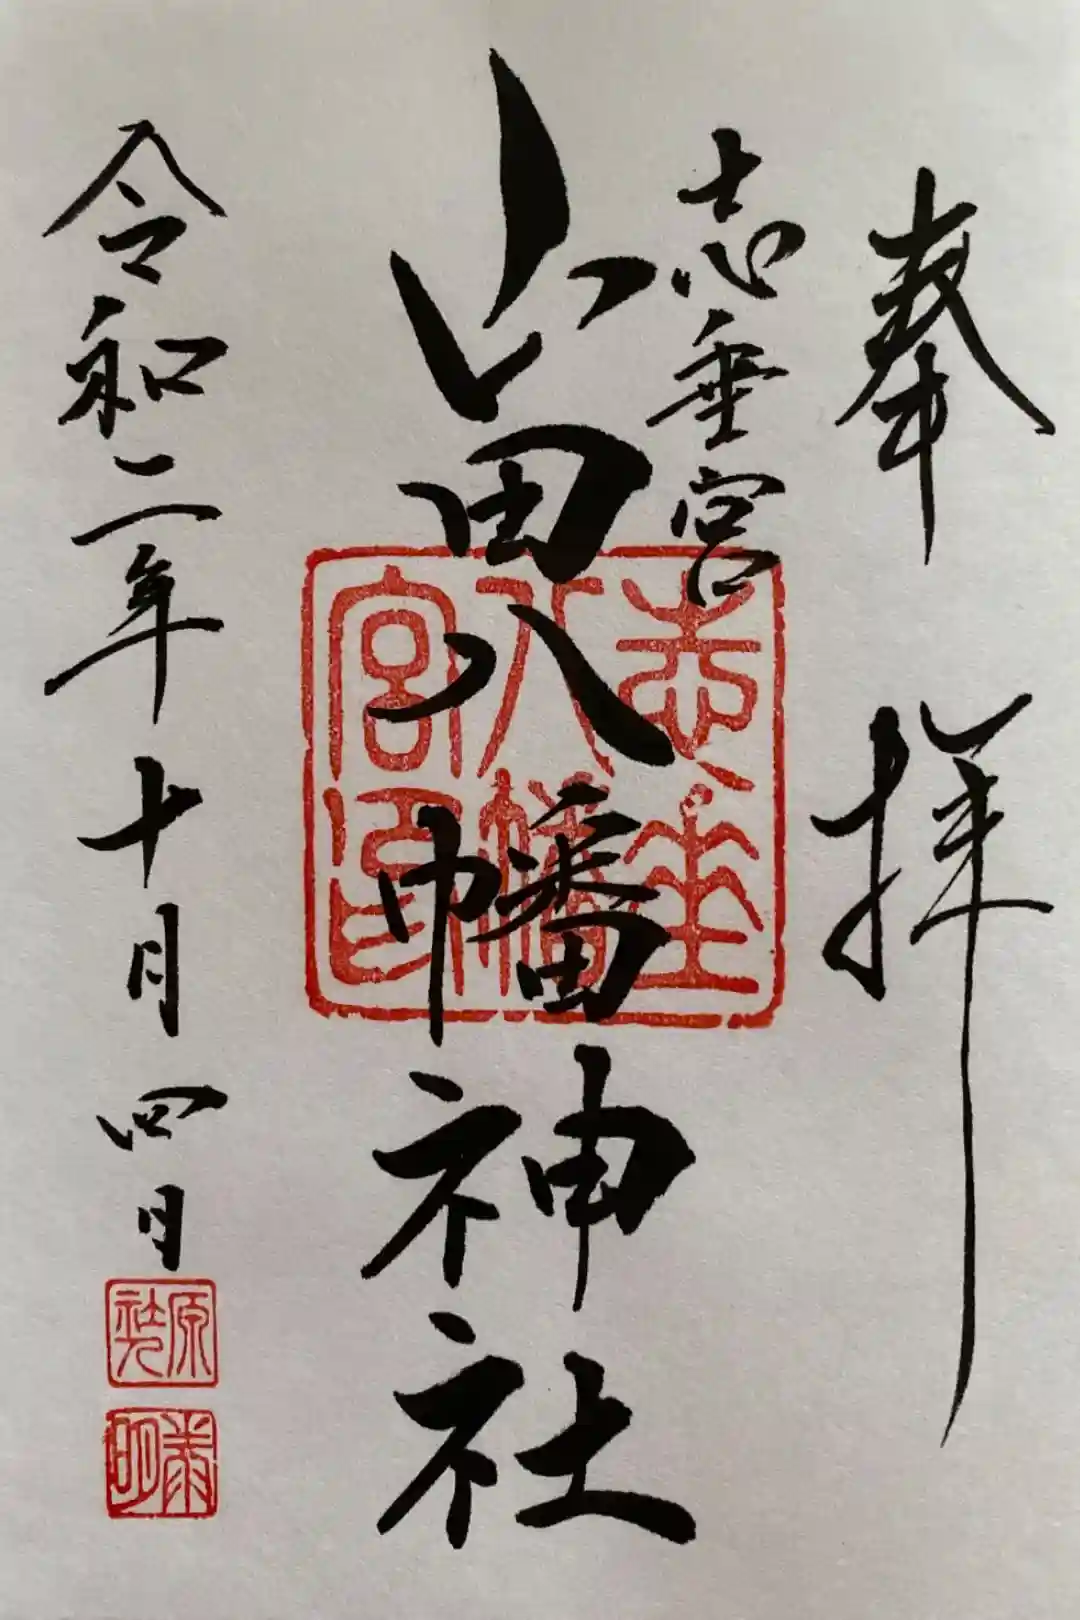 奉拝
志垂宮
山田八幡神社
志垂
八幡
宮印
令和二年十月四日
原